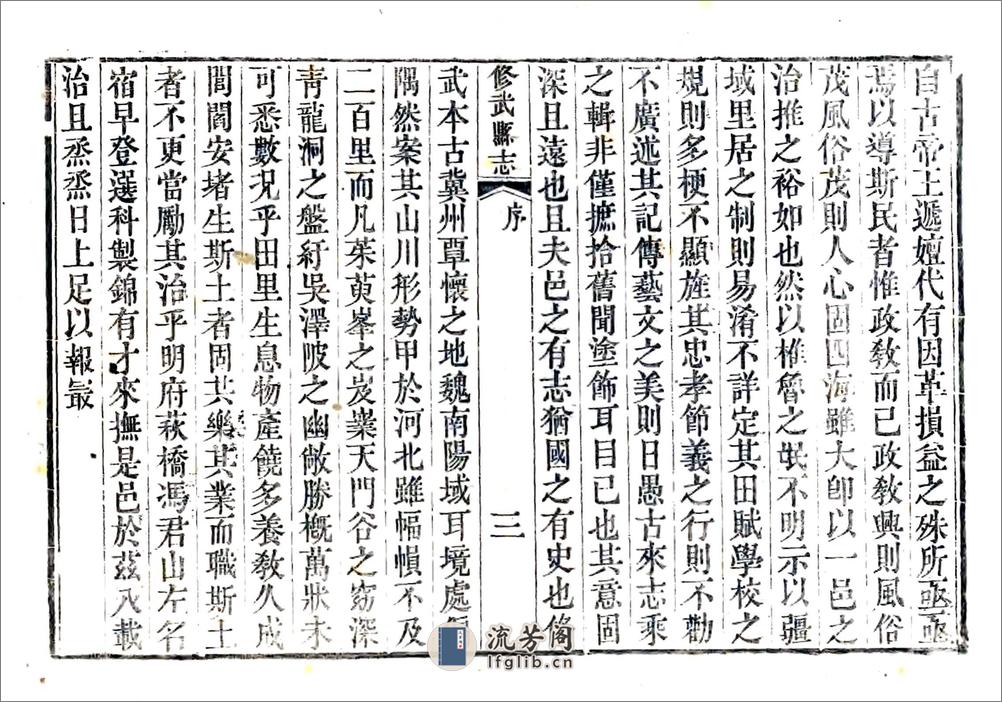 自古帝王遞嬗代有因革損益之殊所亟亟
焉以導斯民者惟政敎而已政敎興則風俗
茂風俗茂則人心固四海雖大卽以一邑之
治推之裕如也然以椎魯之氓不明示以疆
域里居之制則易淆不詳定其田賦學校之
規則多梗不顯旌其忠孝節義之行則不勸
不廣述其記傳藝文之美則日愚古來志乘
之輯非僅摭拾舊聞塗飾耳目已也其意固
深且遠也且夫邑之有志猶國之有史也修
修武縣志 序 三
武本古冀州覃懷之地魏南陽域耳境處
隅然案其山川形勢甲於河北雖幅幀不及
二百里而凡茱萸峯之岌嶪天門谷之窈深
靑龍洞之盤紆吳澤陂之幽敞勝槪萬狀未
可悉數況乎田里生息物產饒多養敎久成
閭閻安堵生斯土者固共樂其業而職斯土
者不更當勵其治乎明府萩橋馮君山左名
宿早登選科製錦有才來撫是邑於茲八載
治且烝烝日上足以報最
流芳閣
lfglib.cn